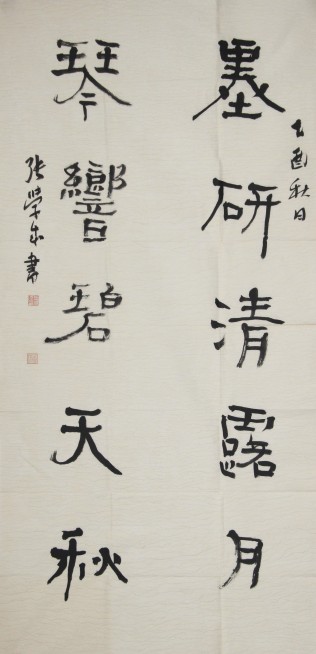 墨研清露月
乙酉秋日
琴響碧天秋
張榮生書